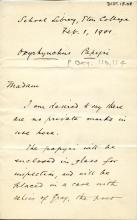 School Library, Eton College
Feb. 1, 1901
Oxyrhynchus Papyri
P. Oxy. 113, 114
Madam
I am desired to say there
are no private marks in
use here.
The papyri will be
enclosed in glass for
inspection, and will be
placed in a case with
relics of Gray, the poet